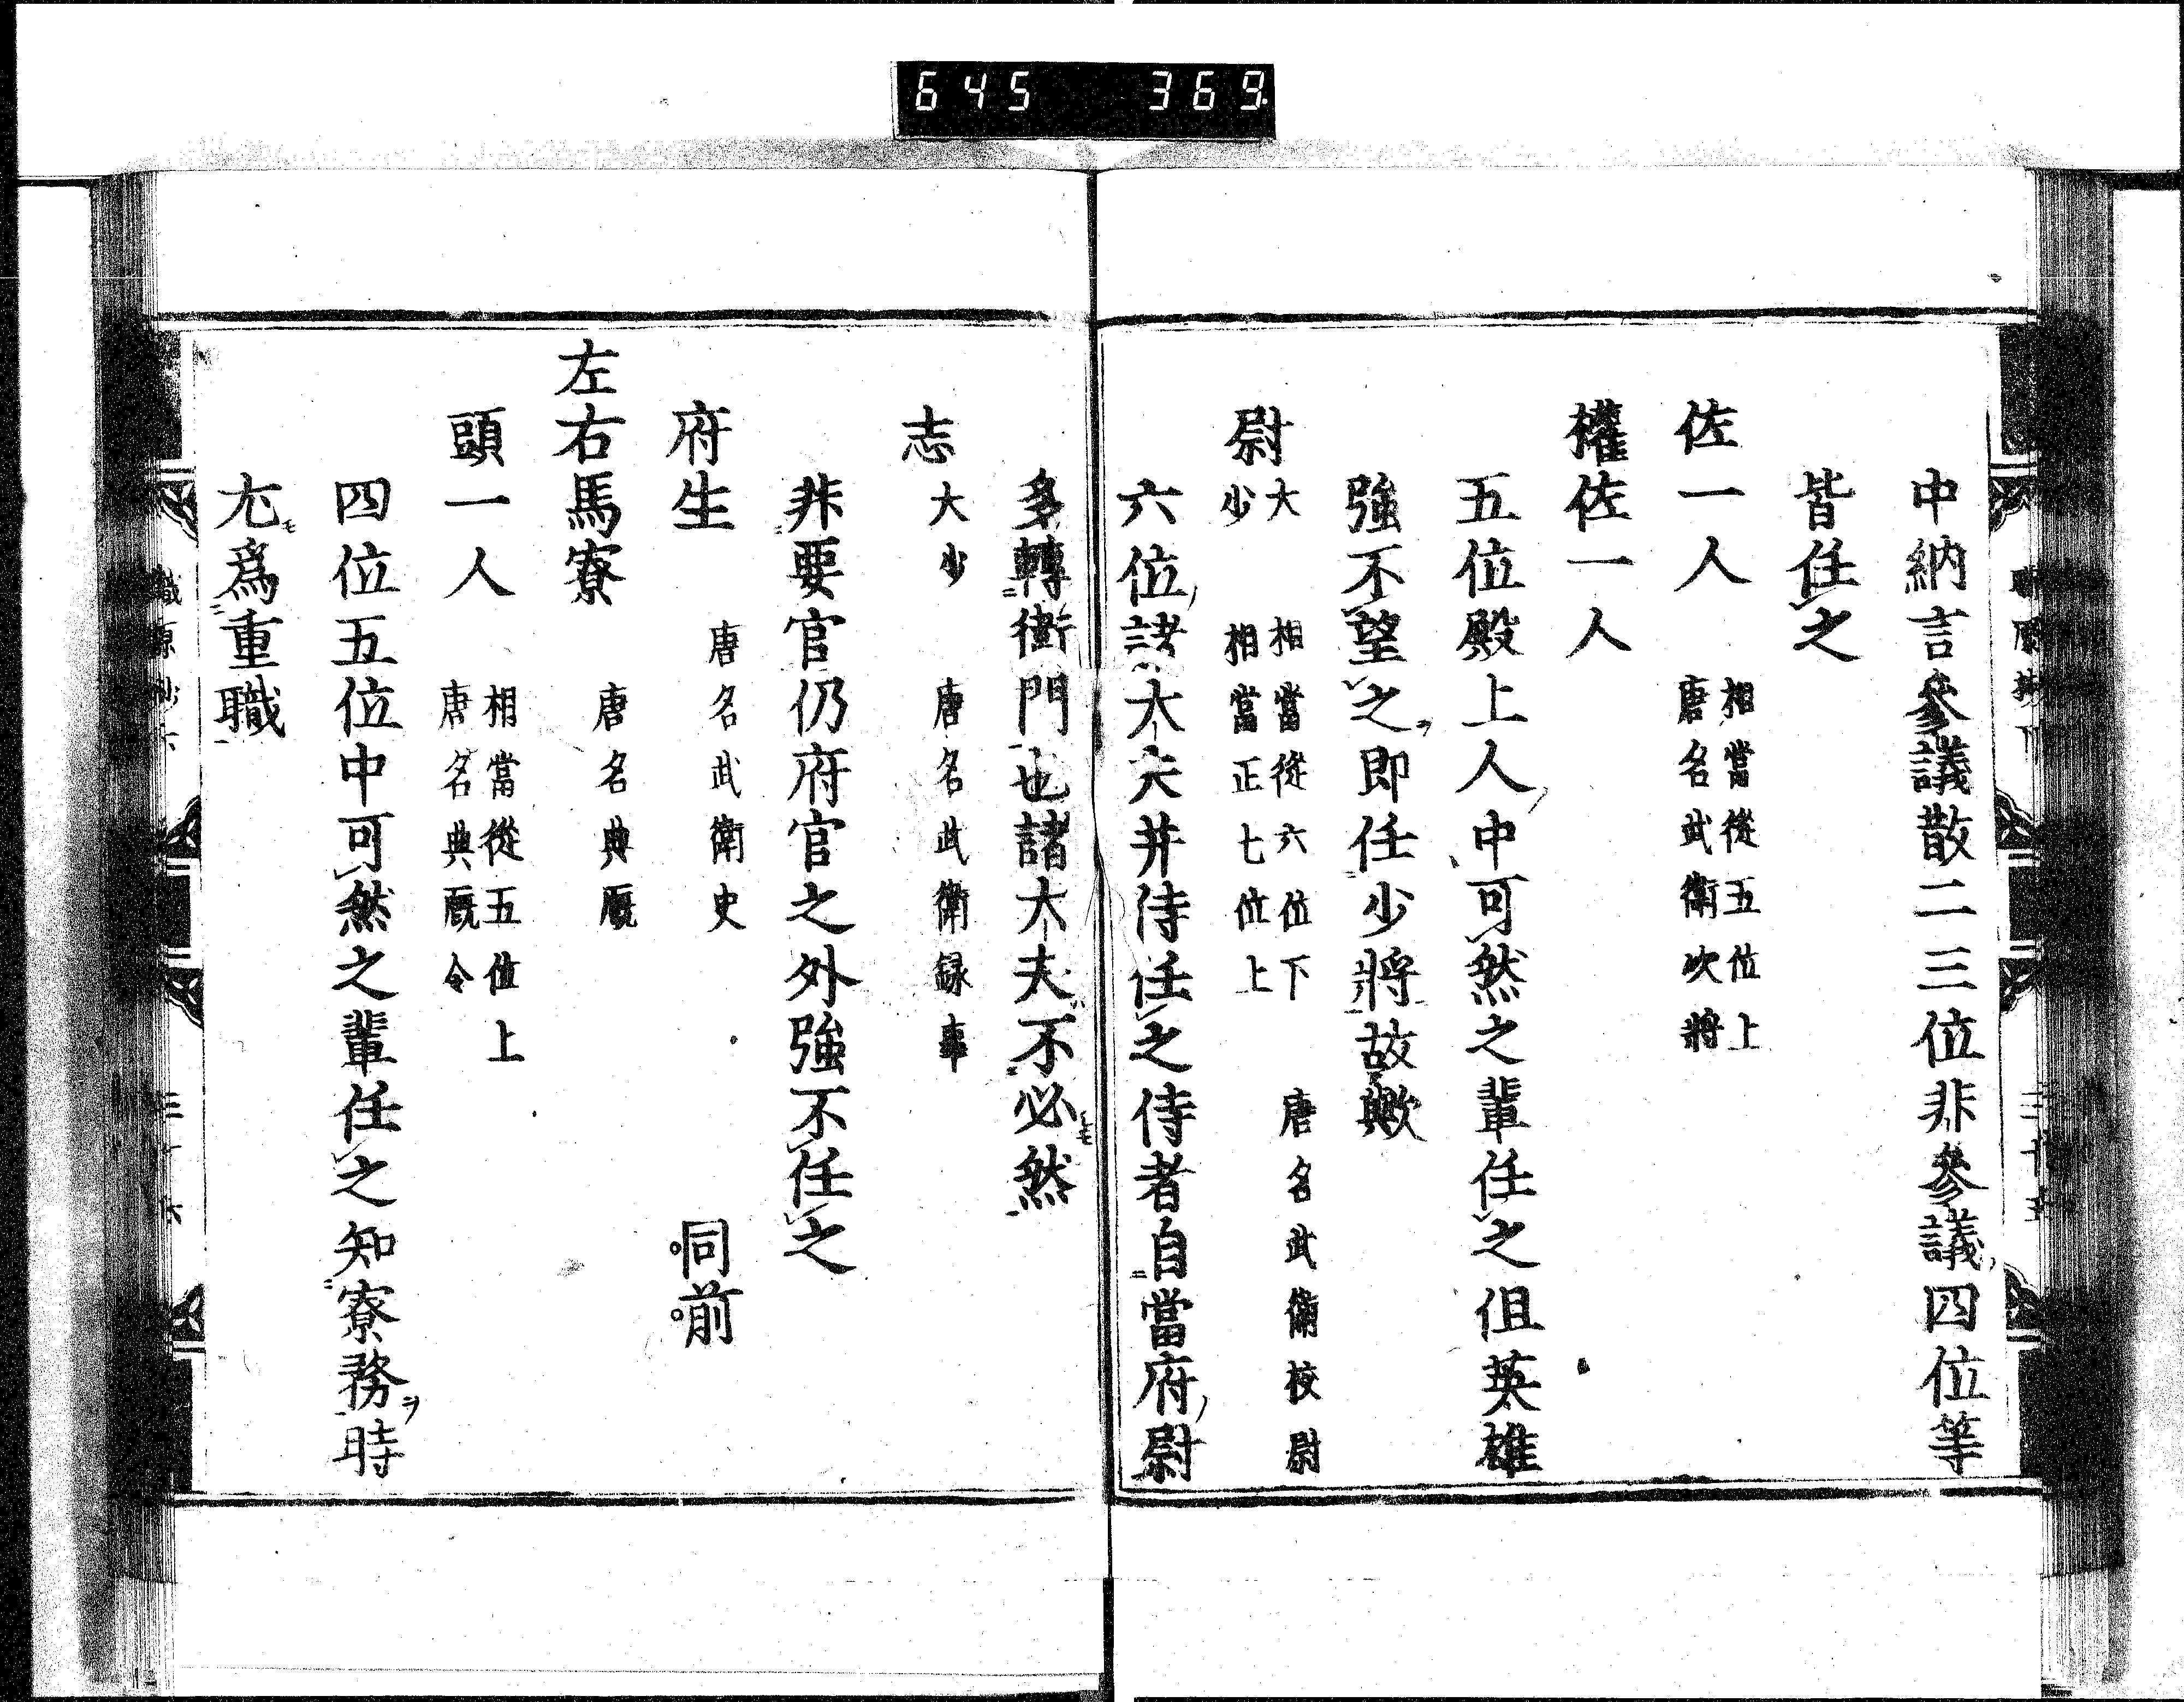 645 369
中納言參議散二三位非參議四位等
皆任之
佐一人 相當從五位上
唐名武衛次將
權佐一人
五位殿上人中可然之輩任之但英雄
強不望之即任少將故歟
尉 大 相當從六位下 唐名武衛校尉
少 相當正七位上
六位諸大夫并侍任之侍者自當府尉
多轉衛門也諸大夫不必然
志 大少 唐名武衛録事
非要官仍府官之外強不任之
府生 唐名武衛史 同前
左右馬寮 唐名典厩
頭一人 相當從五位上
唐名典厩令
四位五位中可然之輩任之知寮務時
尤爲重職